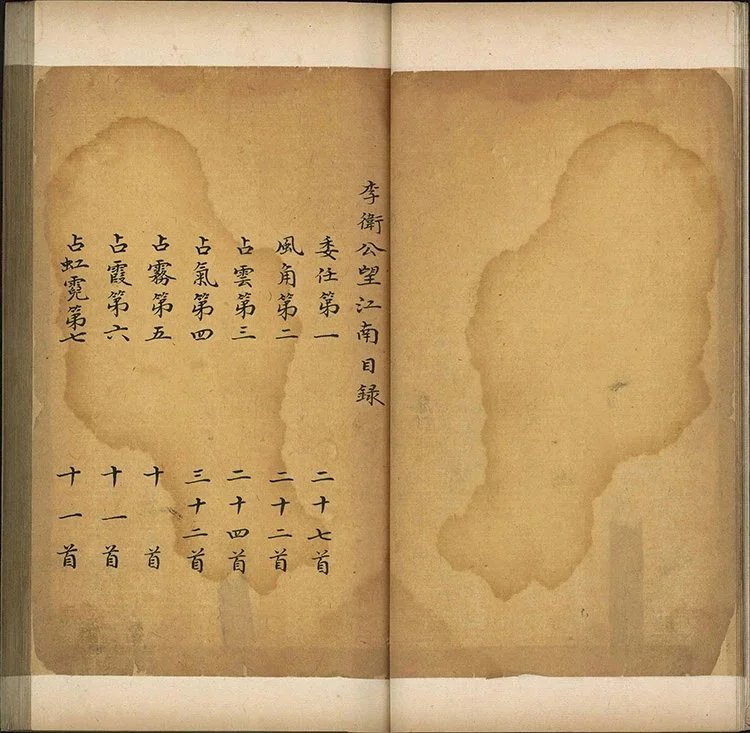 李衛公望江南目錄
委任第一 二十七首
風角第二 二十二首
占雲第三 二十四首
占氣第四 三十二首
占霧第五 十首
占霞第六 十一首
占虹霓第七 十一首